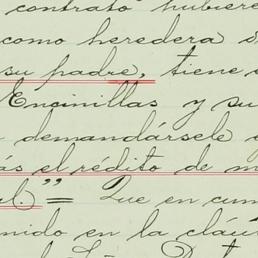 contrato hubiere
como heredera
su padre, tiene
Encinillas y su
demandársele
ás el rédito de m
al." = Que en cum
nido en la cláu